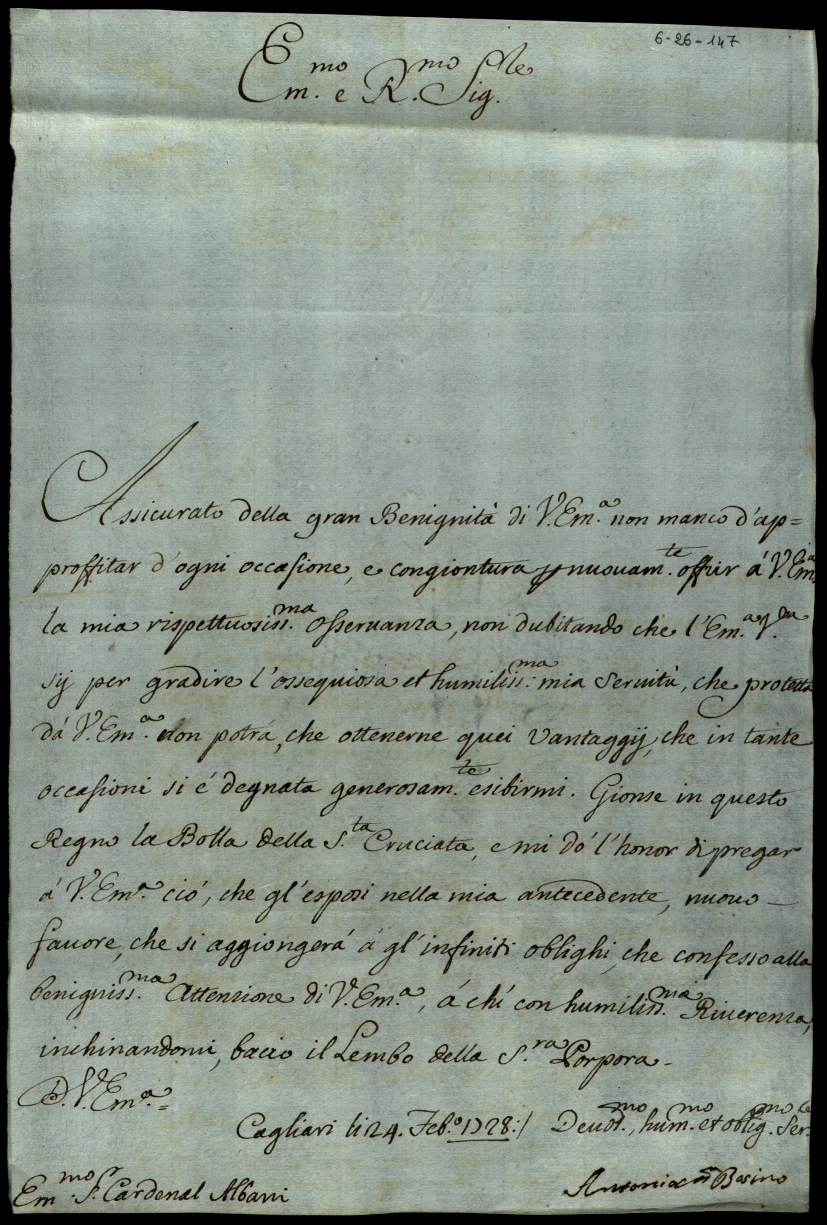 6-26-147
Em.mo e R.mo Sig.re
Assicurato della gran Benignità di V.Em.a non manco d'ap=
proffitar d'ogni occasione, e congiontura p nuouam.te offrir á V.Em.a
la mia rispettuosiss.ma osseruanza, non dubitando che l'Em.a V.ra
sij per gradire l'ossequiosa et humiliss.ma mia seruitù, che protetta
dá V.Em.a non potrá, che ottenerne quei Vantaggij, che in tante
occasioni si é degnata generosam.te esibirmi. Gionse in questo
Regno la Bolla della S.ta Cruciata, e mi dó l'honor di pregar
á V.Em.a ció, che gl'esposi nella mia antecedente, nuouo
fauore, che si aggiongerá á gl'infiniti oblighi, che confesso alla
benigniss.ma Attenzione di V.Em.a, á chí con humiliss.ma Riuerenza,
inchinandomi, bacio il Lembo della S.ra Porpora.
D. V.Em.a=
Cagliari li 24. Feb.o 1728:/ Deuot.mo, hum.mo et oblig.mo Ser.e
Em.mo S.r Cardenal Albani
Antonio Bosino